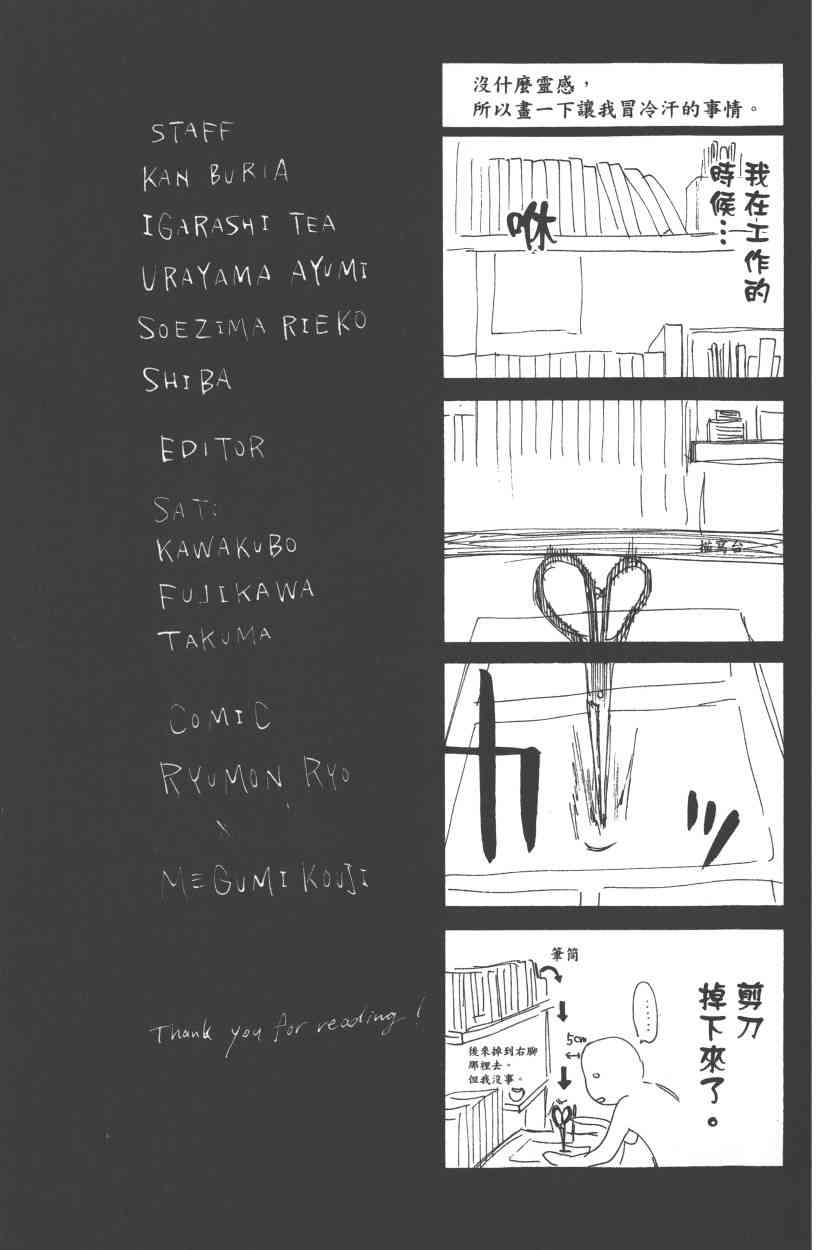 沒什麼靈感，
所以畫一下讓我冒冷汗的事情。
我在工作的
時候…
咻
描寫台
カッ
筆筒
5cm
後來掉到右腳
那裡去。
但我沒事。
……
剪刀
掉下來了。
STAFF
KAN BURIA
IGARASHI TEA
URAYAMA AYUMI
SOEZIMA RIEKO
SHIBA
EDITOR
KAWAKUBO
FUJIKAWA
TAKUMA
COMIC
RYUMON RYO
×
MEGUMI KOUJI
Thank you for reading!